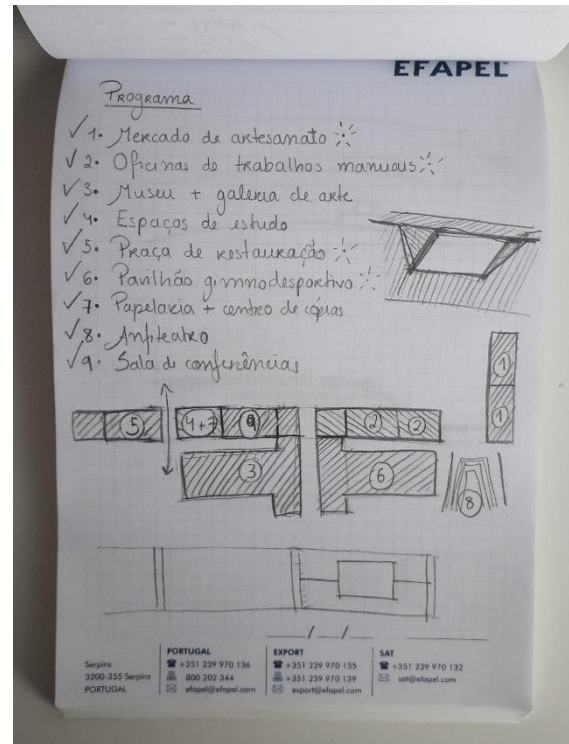 EFAPEL
Programa
✓ 1. Mercado de artesanato
✓ 2. Oficinas de trabalhos manuais
✓ 3. Museu + galeria de arte
✓ 4. Espaços de estudo
✓ 5. Praça de restauração
✓ 6. Pavilhão gimnodesportivo
✓ 7. Papelaria + centro de cópias
✓ 8. Anfiteatro
✓ 9. Sala de conferências
1
1
5
4+7
9
2
2
3
6
8
Serpins
3200-355 Serpins
PORTUGAL
PORTUGAL
+351 239 970 136
800 202 344
efapel@efapel.com
EXPORT
+351 239 970 135
+351 239 970 139
export@efapel.com
SAT
+351 239 970 132
sat@efapel.com